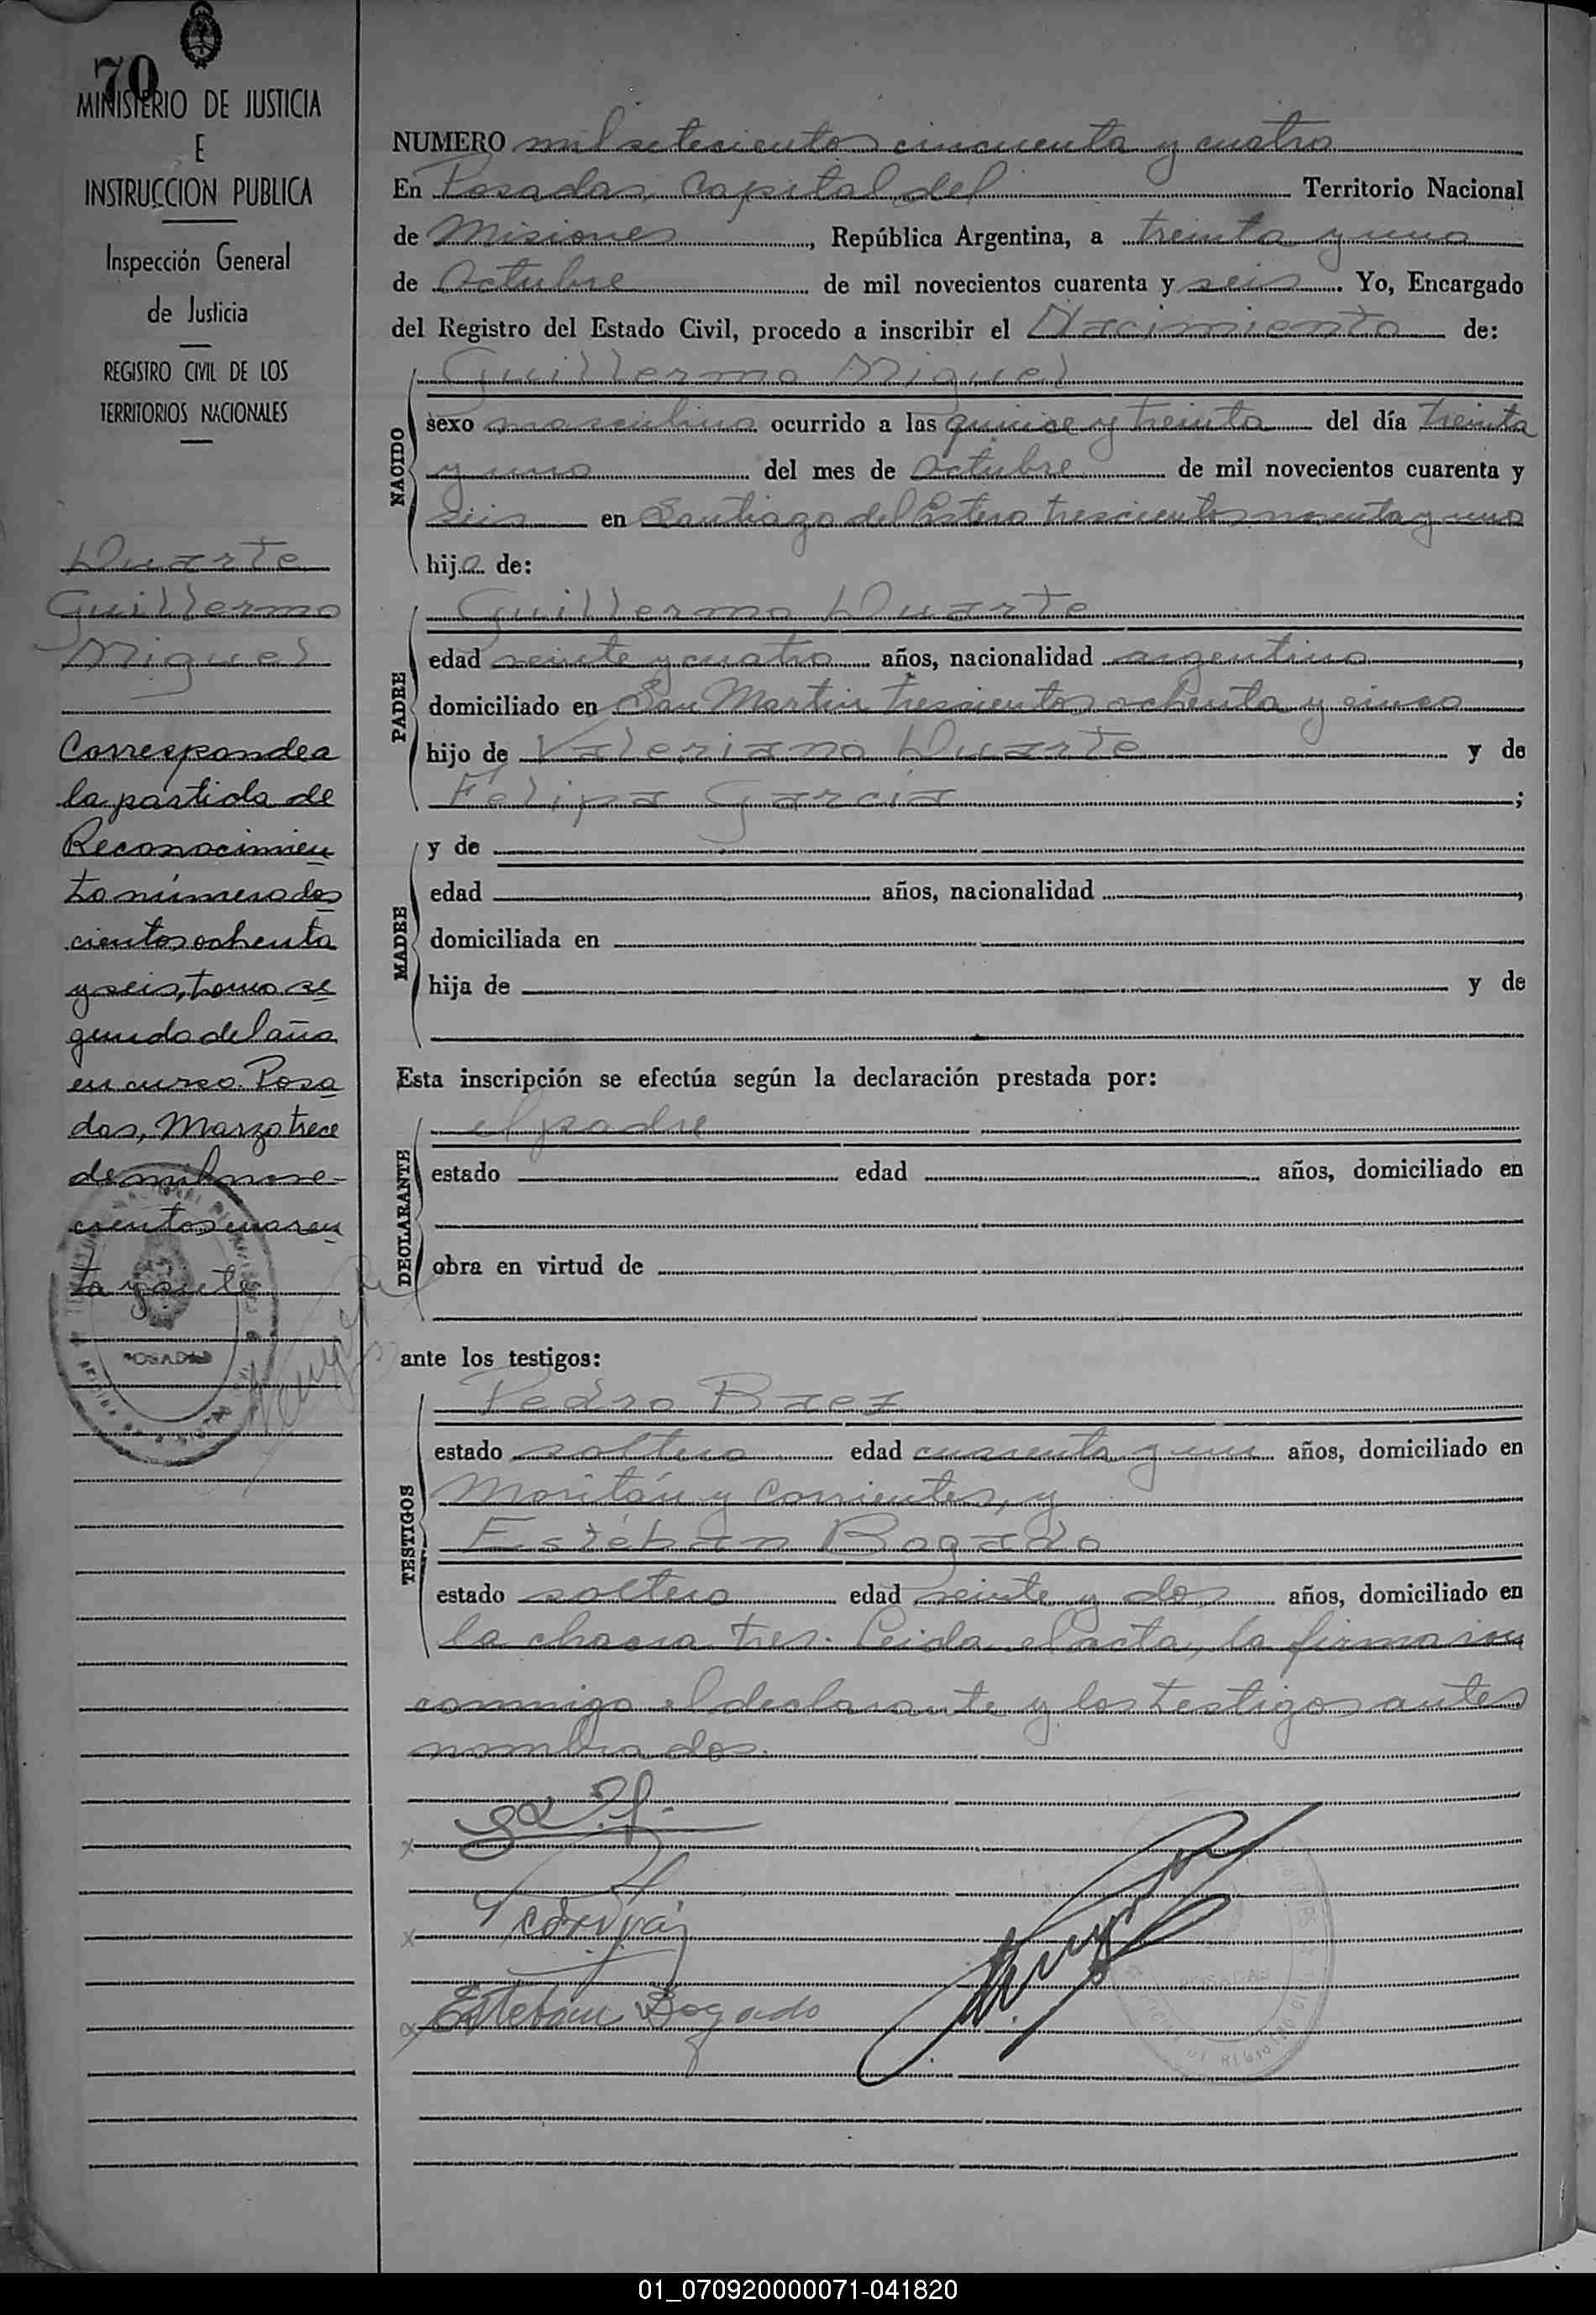 70
MINISTERIO DE JUSTICIA
E
INSTRUCCION PUBLICA
Inspección General
de Justicia
REGISTRO CIVIL DE LOS
TERRITORIOS NACIONALES
Duarte
Guillermo
Miguel
Corresponde a
la partida de
Reconocimien
to número dos
cientos ochenta
y seis, tomo se
gundo del año
en curso. Posa
das, Marzo trece
de mil nove-
cientos cuaren
ta y siete
POSADAS
NUMERO mil setecientos cincuenta y cuatro
En Posadas, Capital del Territorio Nacional
de Misiones, República Argentina, a treinta y uno
de Octubre de mil novecientos cuarenta y seis. Yo, Encargado
del Registro del Estado Civil, procedo a inscribir el Nacimiento de:
NACIDO
Guillermo Miguel
sexo masculino ocurrido a las quince y treinta del día treinta
y uno del mes de Octubre de mil novecientos cuarenta y
seis en Santiago del Estero trescientos noventa y uno
hijo de:
PADRE
Guillermo Duarte
edad veinte y cuatro años, nacionalidad argentino,
domiciliado en San Martin trescientos ochenta y cinco
hijo de Valeriano Duarte y de
Felipa Garcia;
MADRE
y de
edad años, nacionalidad ,
domiciliada en
hija de y de
Esta inscripción se efectúa según la declaración prestada por:
DECLARANTE
el padre
estado edad años, domiciliado en
obra en virtud de
ante los testigos:
TESTIGOS
Pedro Baez
estado soltero edad cuarenta y un años, domiciliado en
Moritán y Corrientes, y
Estéban Bogado
estado soltero edad veinte y dos años, domiciliado en
la chacra tres. Leida el acta, la firmaron
conmigo el declarante y los testigos antes
nombrados.
x
x
x Esteban Bogado
POSADAS
01_070920000071-041820